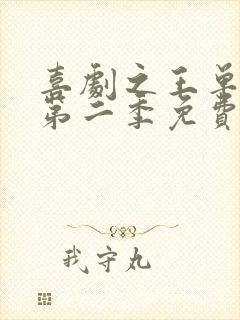 喜劇之王單
第二季免費
我守丸